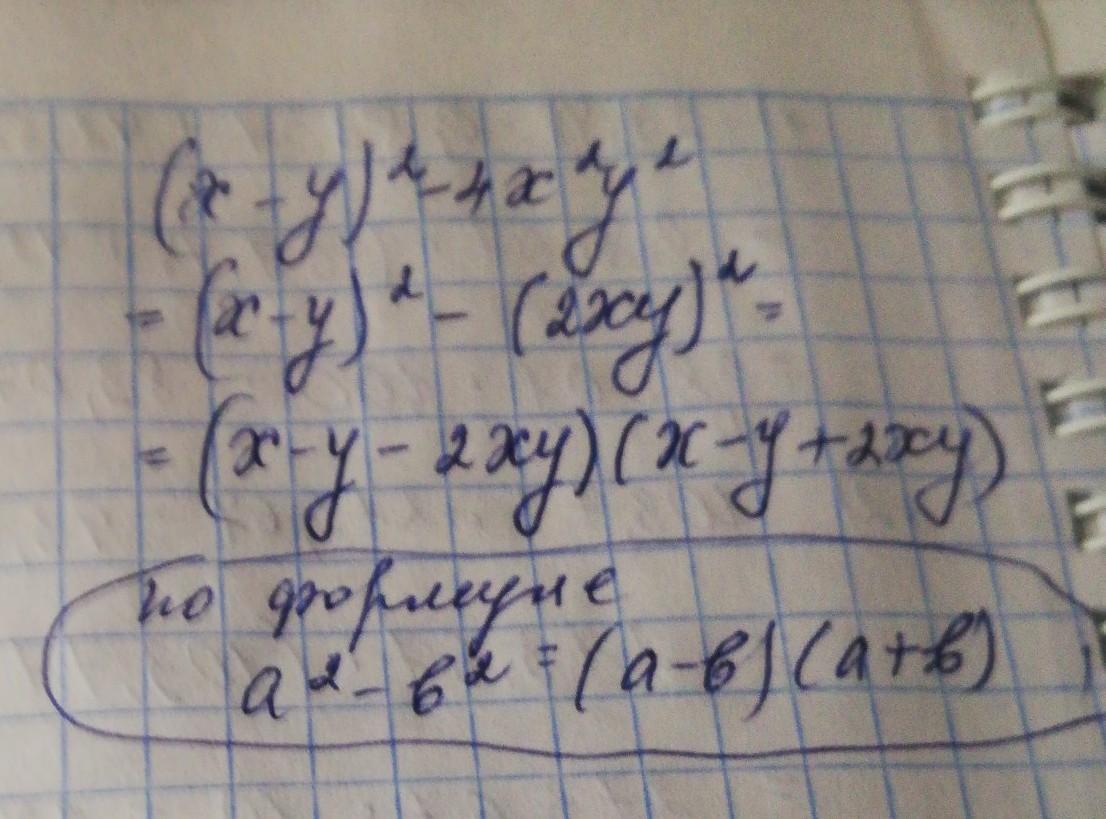 (x-y)²-4x²y²
=(x-y)²-(2xy)²=
=(x-y-2xy)(x-y+2xy)
по формуле
a²-в²=(a-в)(a+в)